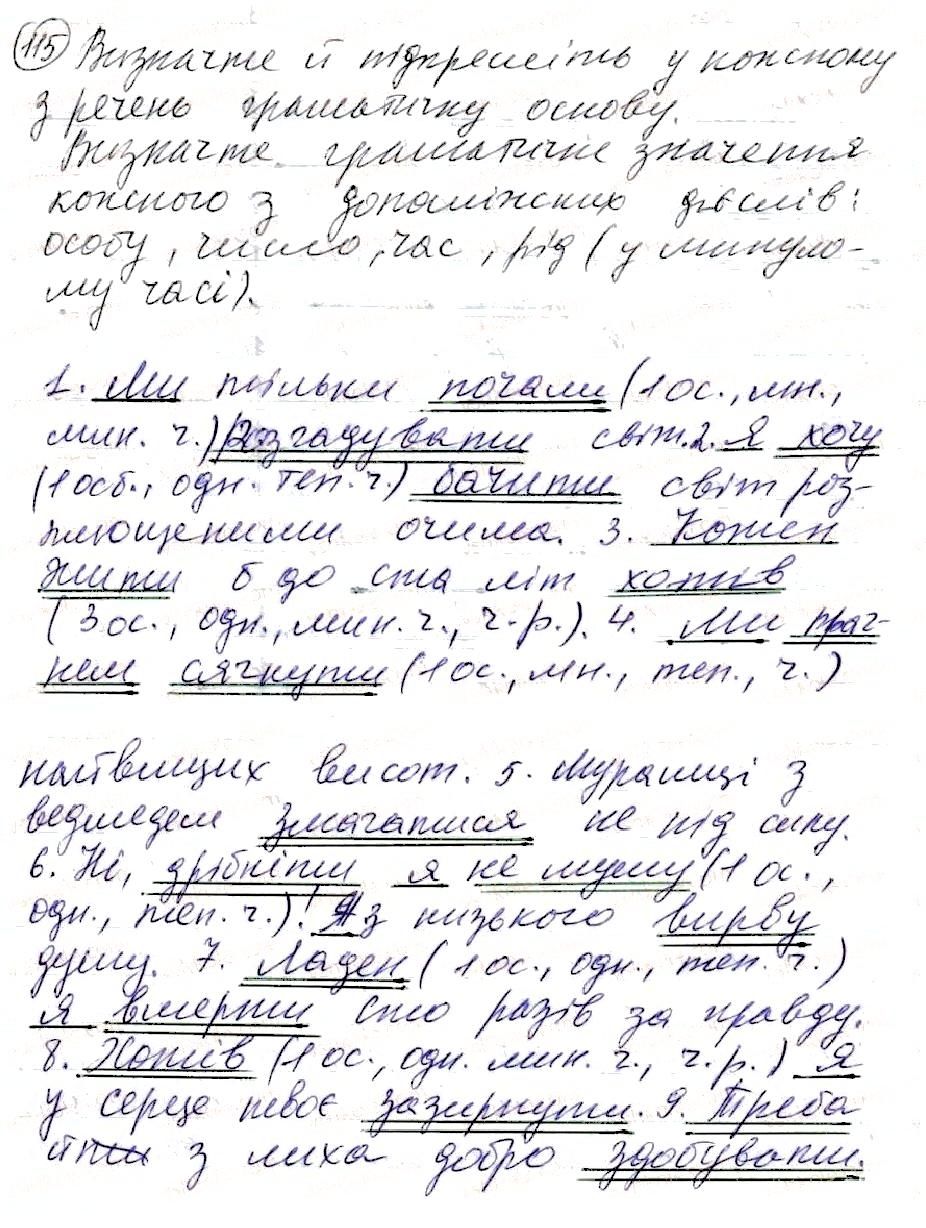 115 Визначте й підкресліть у кожному
з речень граматичну основу.
Визначте граматичне значення
кожного з допоміжних дієслів:
особу, число, час, рід (у минуло-
му часі).
1. Ми тільки почали (1 ос., мн.,
мин. ч.) розгадувати світ. 2. Я хочу
(1 осб., одн. теп. ч.) бачити світ роз-
плющеними очима. 3. Кожен
жити б до ста літ хотів
(3 ос., одн., мин. ч., ч. р.). 4. Ми праг-
нем сягнути (1 ос., мн., теп., ч.)
найвищих висот. 5. Мурашці з
ведмедем змагатися не під силу.
6. Ні, дрібніти я не мушу (1 ос.,
одн., теп. ч.)! Я з низького вирву
душу. 7. Ладен (1 ос., одн., теп. ч.)
я вмерти сто разів за правду.
8. Хотів (1 ос., одн. мин. ч., ч. р.) я
у серце твоє зазирнути. 9. Треба
й з лиха добро здобувати.